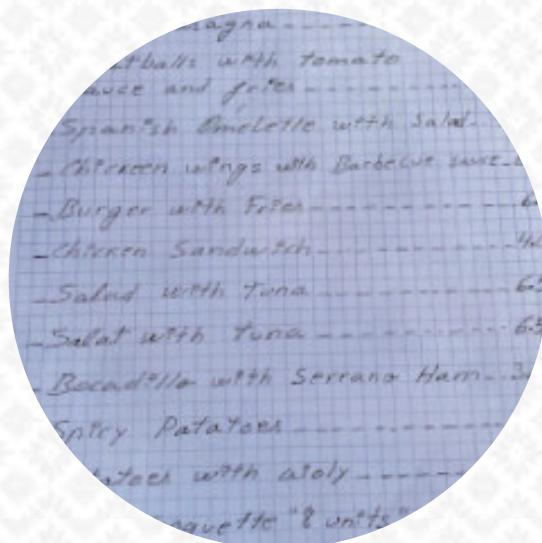 with tomato
and fries - - - - - - - - - -
Spanish Omelette with Salad - -
- Chickeen wings with Barbecue sauce -
- Burger with Fries - - - - - - - - - - - - -
- Chicken Sandwich - - - - - - - - - - - -
- Salad with tuna - - - - - - - - - - - - 6.5
- Salat with tuna - - - - - - - - - - - - 6.5
- Bocadillo with Serrano Ham - -
Spicy Patatoes - - - - - - - - - - - -
with aioly - - - - - - - -
"8 units"